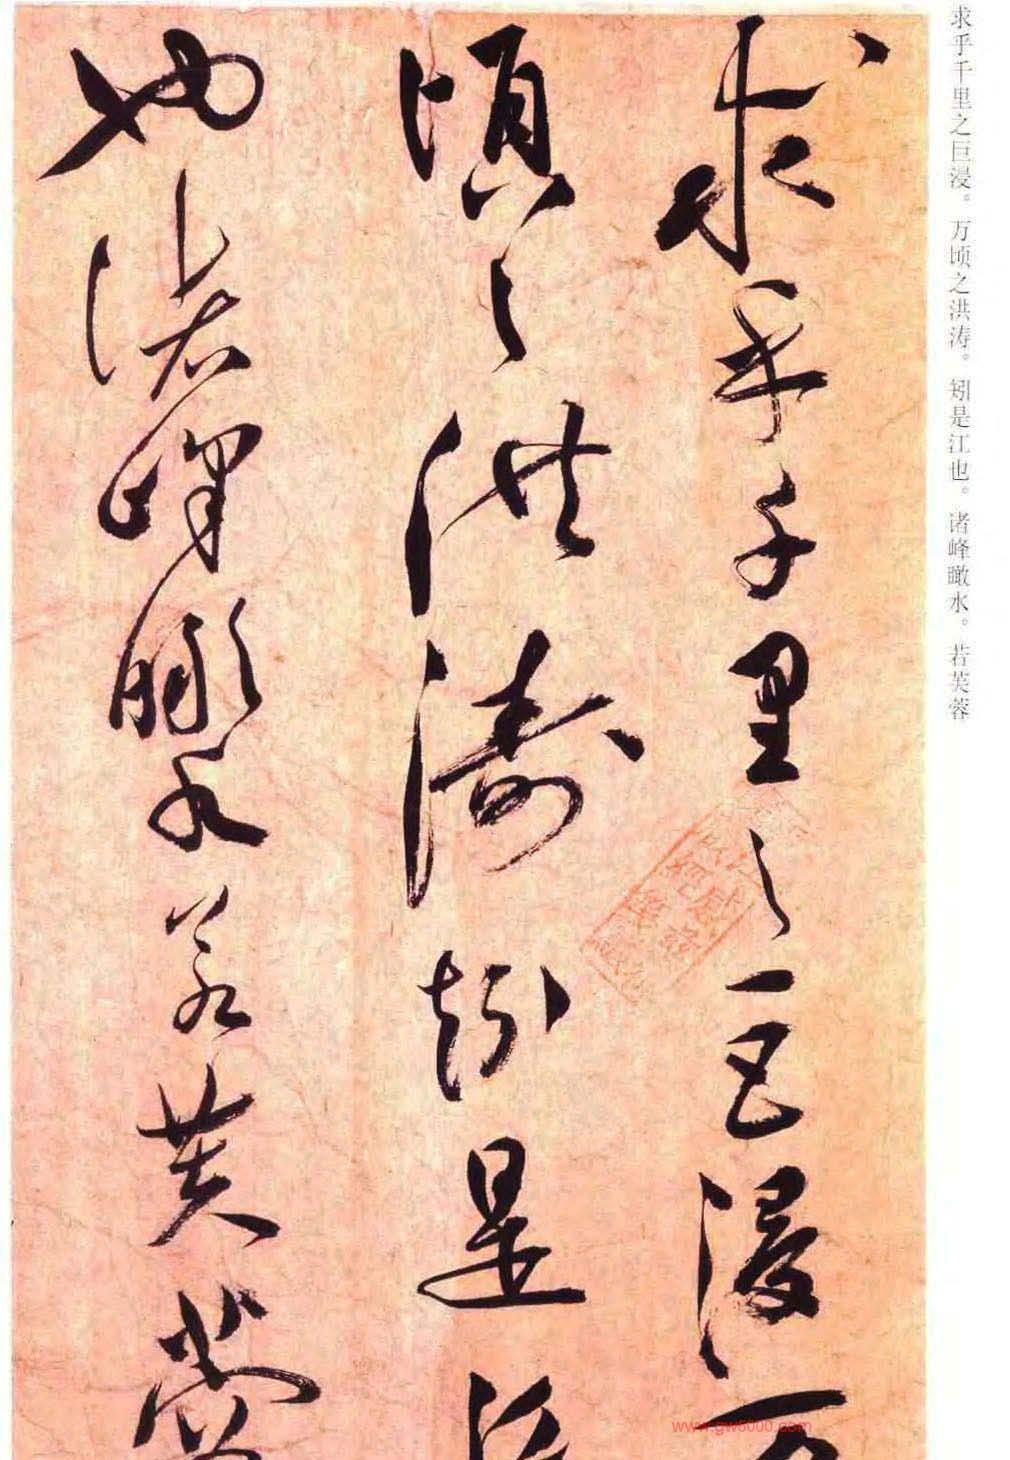 求乎千里之巨浸。万顷之洪涛。矧是江也。诸峰瞰水。若芙蓉
求乎千里之巨浸万
頃之洪濤矧是江
也諸峰瞰水若芙蓉
www.gw6000.com